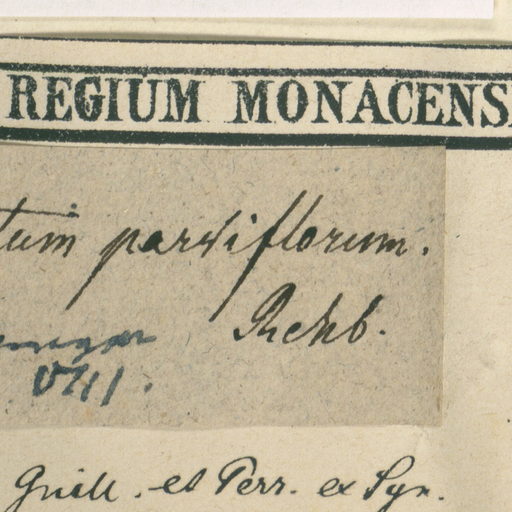 REGIUM MONACENS
tum parviflorum.
Rchb.
VIII.
Guill. et Perr. ex Syn.